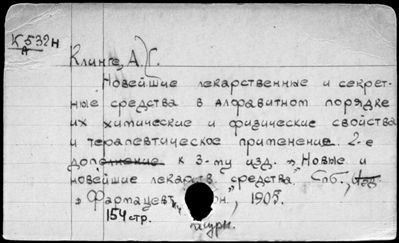 К 532 н
А
Клинге, А. Г.
Новейшие лекарственные и секрет-
ные средства в алфавитном порядке
их химические и физические свойства
и терапевтическое применение. 2-е
дополнение к 3-му изд. „Новые и
новейшие лекарств. средства." Спб.,
„Фармацевт , 1905.
154 стр.